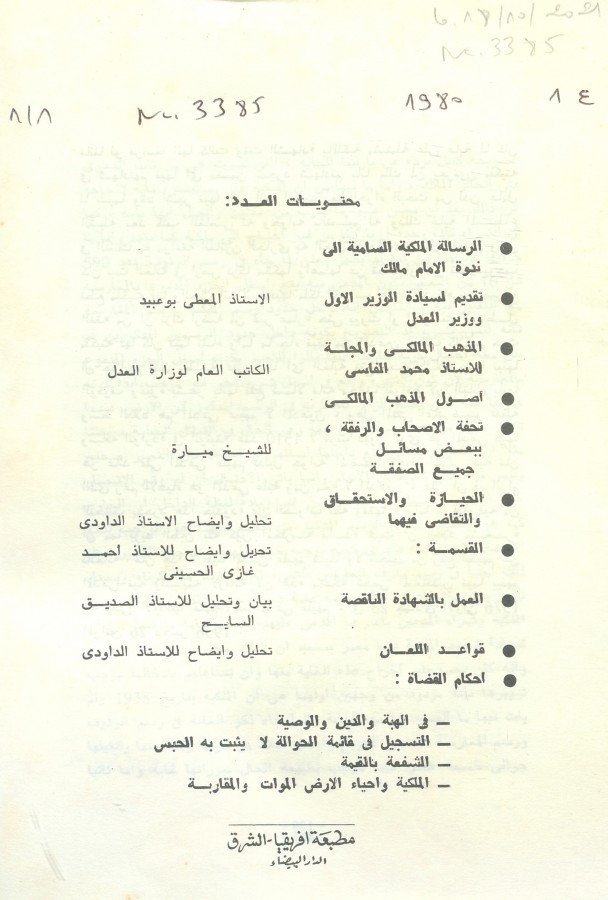 6.18/10/2021
Nc. 3385
٨/٨ Nc. 3385 1980 ع 1
محتويات العدد:
● الرسالة الملكية السامية الى
ندوة الامام مالك
● تقديم لسيادة الوزير الاول الاستاذ المعطى بوعبيد
ووزير العدل
● المذهب المالكى والمجلة
للاستاذ محمد الفاسى الكاتب العام لوزارة العدل
● أصول المذهب المالكى
● تحفة الاصحاب والرفقة ،
ببعض مسائل للشيخ ميارة
جميع الصفقة
● الحيازة والاستحقاق
والتقاضى فيهما تحليل وايضاح الاستاذ الداودى
● القسمة : تحليل وايضاح للاستاذ احمد
غازى الحسينى
● العمل بالشهادة الناقصة بيان وتحليل للاستاذ الصديق
السايح
● قواعد اللعان تحليل وايضاح للاستاذ الداودى
● احكام القضاة :
— فى الهبة والدين والوصية
— التسجيل فى قائمة الحوالة لا يثبت به الحبس
— الشفعة بالقيمة
— الملكية واحياء الارض الموات والمقاربة
مطبعة افريقيا-الشرق
الدار البيضاء